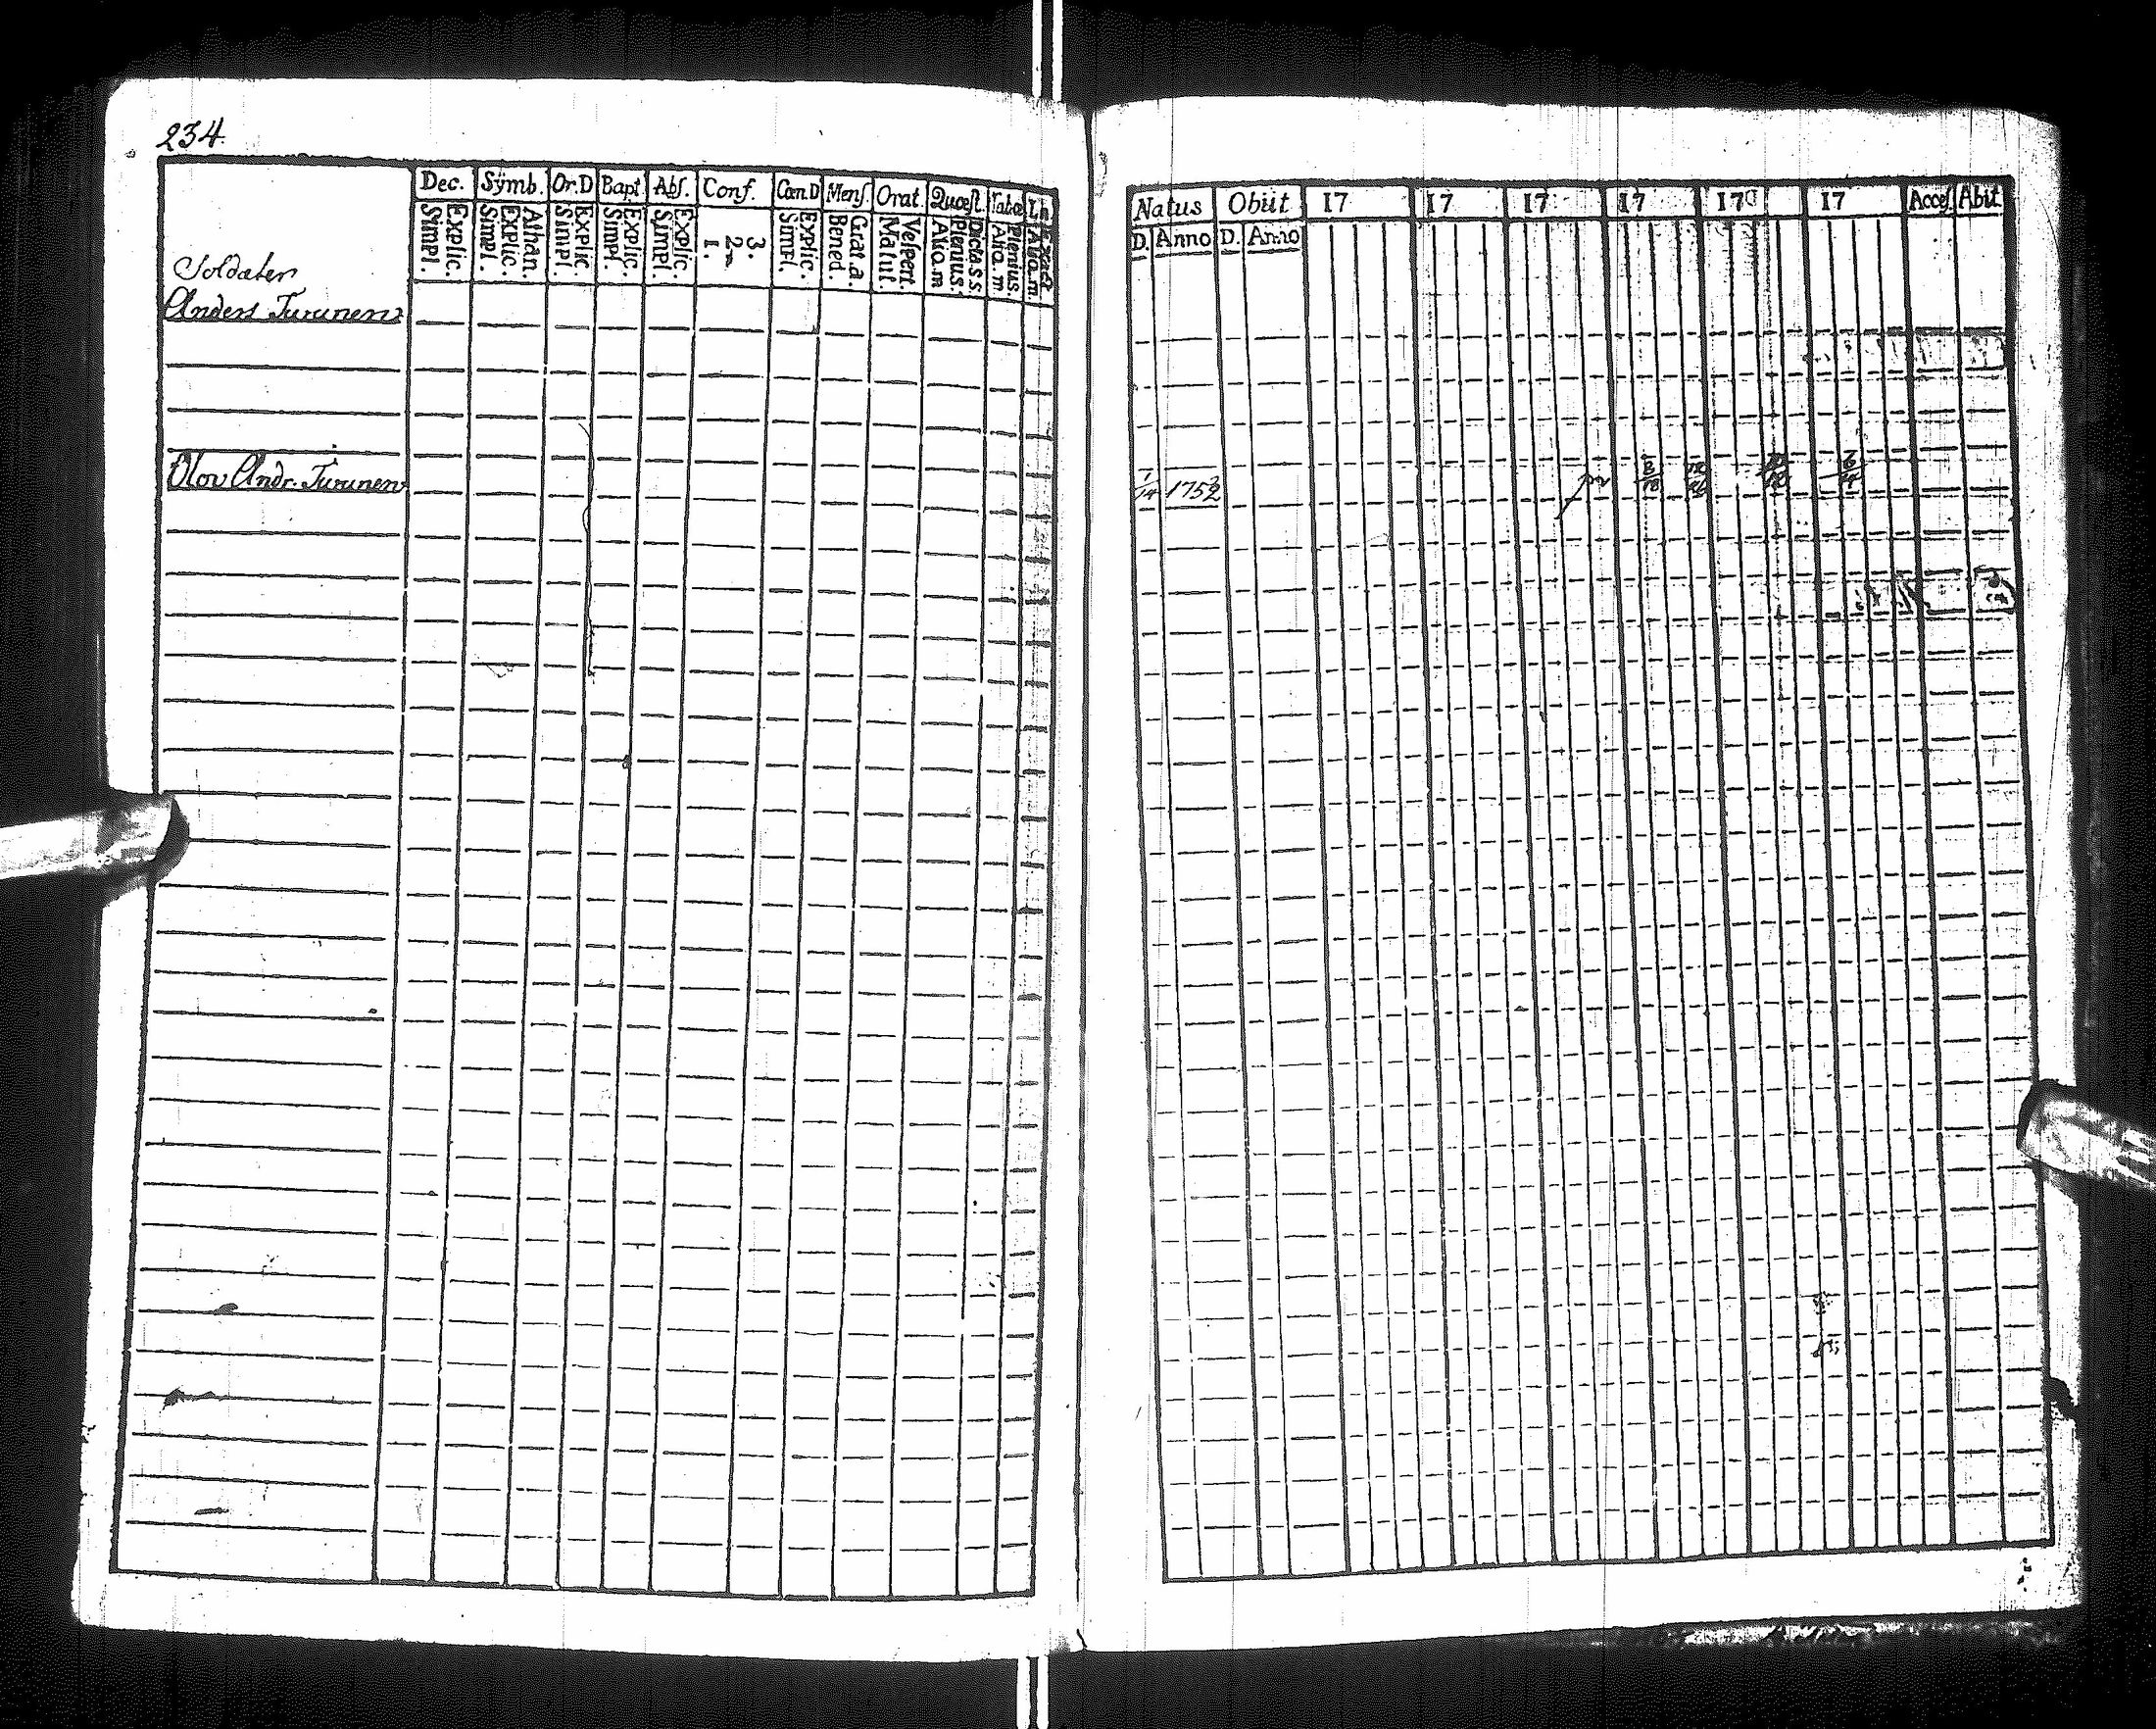 234.
Dec. Symb. Or.D Bapt. Abs. Conf. Can.D Mens. Orat. Quæst. Tabæ Ln.
Simpl. Explic. Simpl. Explic. Athan. Simpl. Explic. Simpl. Explic. Simpl. Explic. 1. 2. 3. Simpl. Explic. Bened. Grat.a. Matut. Vespert. Alio.m Plenius. Dicta s s Alio.m. Plenius. Alio.m.
Soldater
Anders Turunen
Olov Andr. Turunen
Natus Obiit 17 17 17 17 17 17 Acces. Abit
D. Anno D. Anno
1/14 1752
8/18